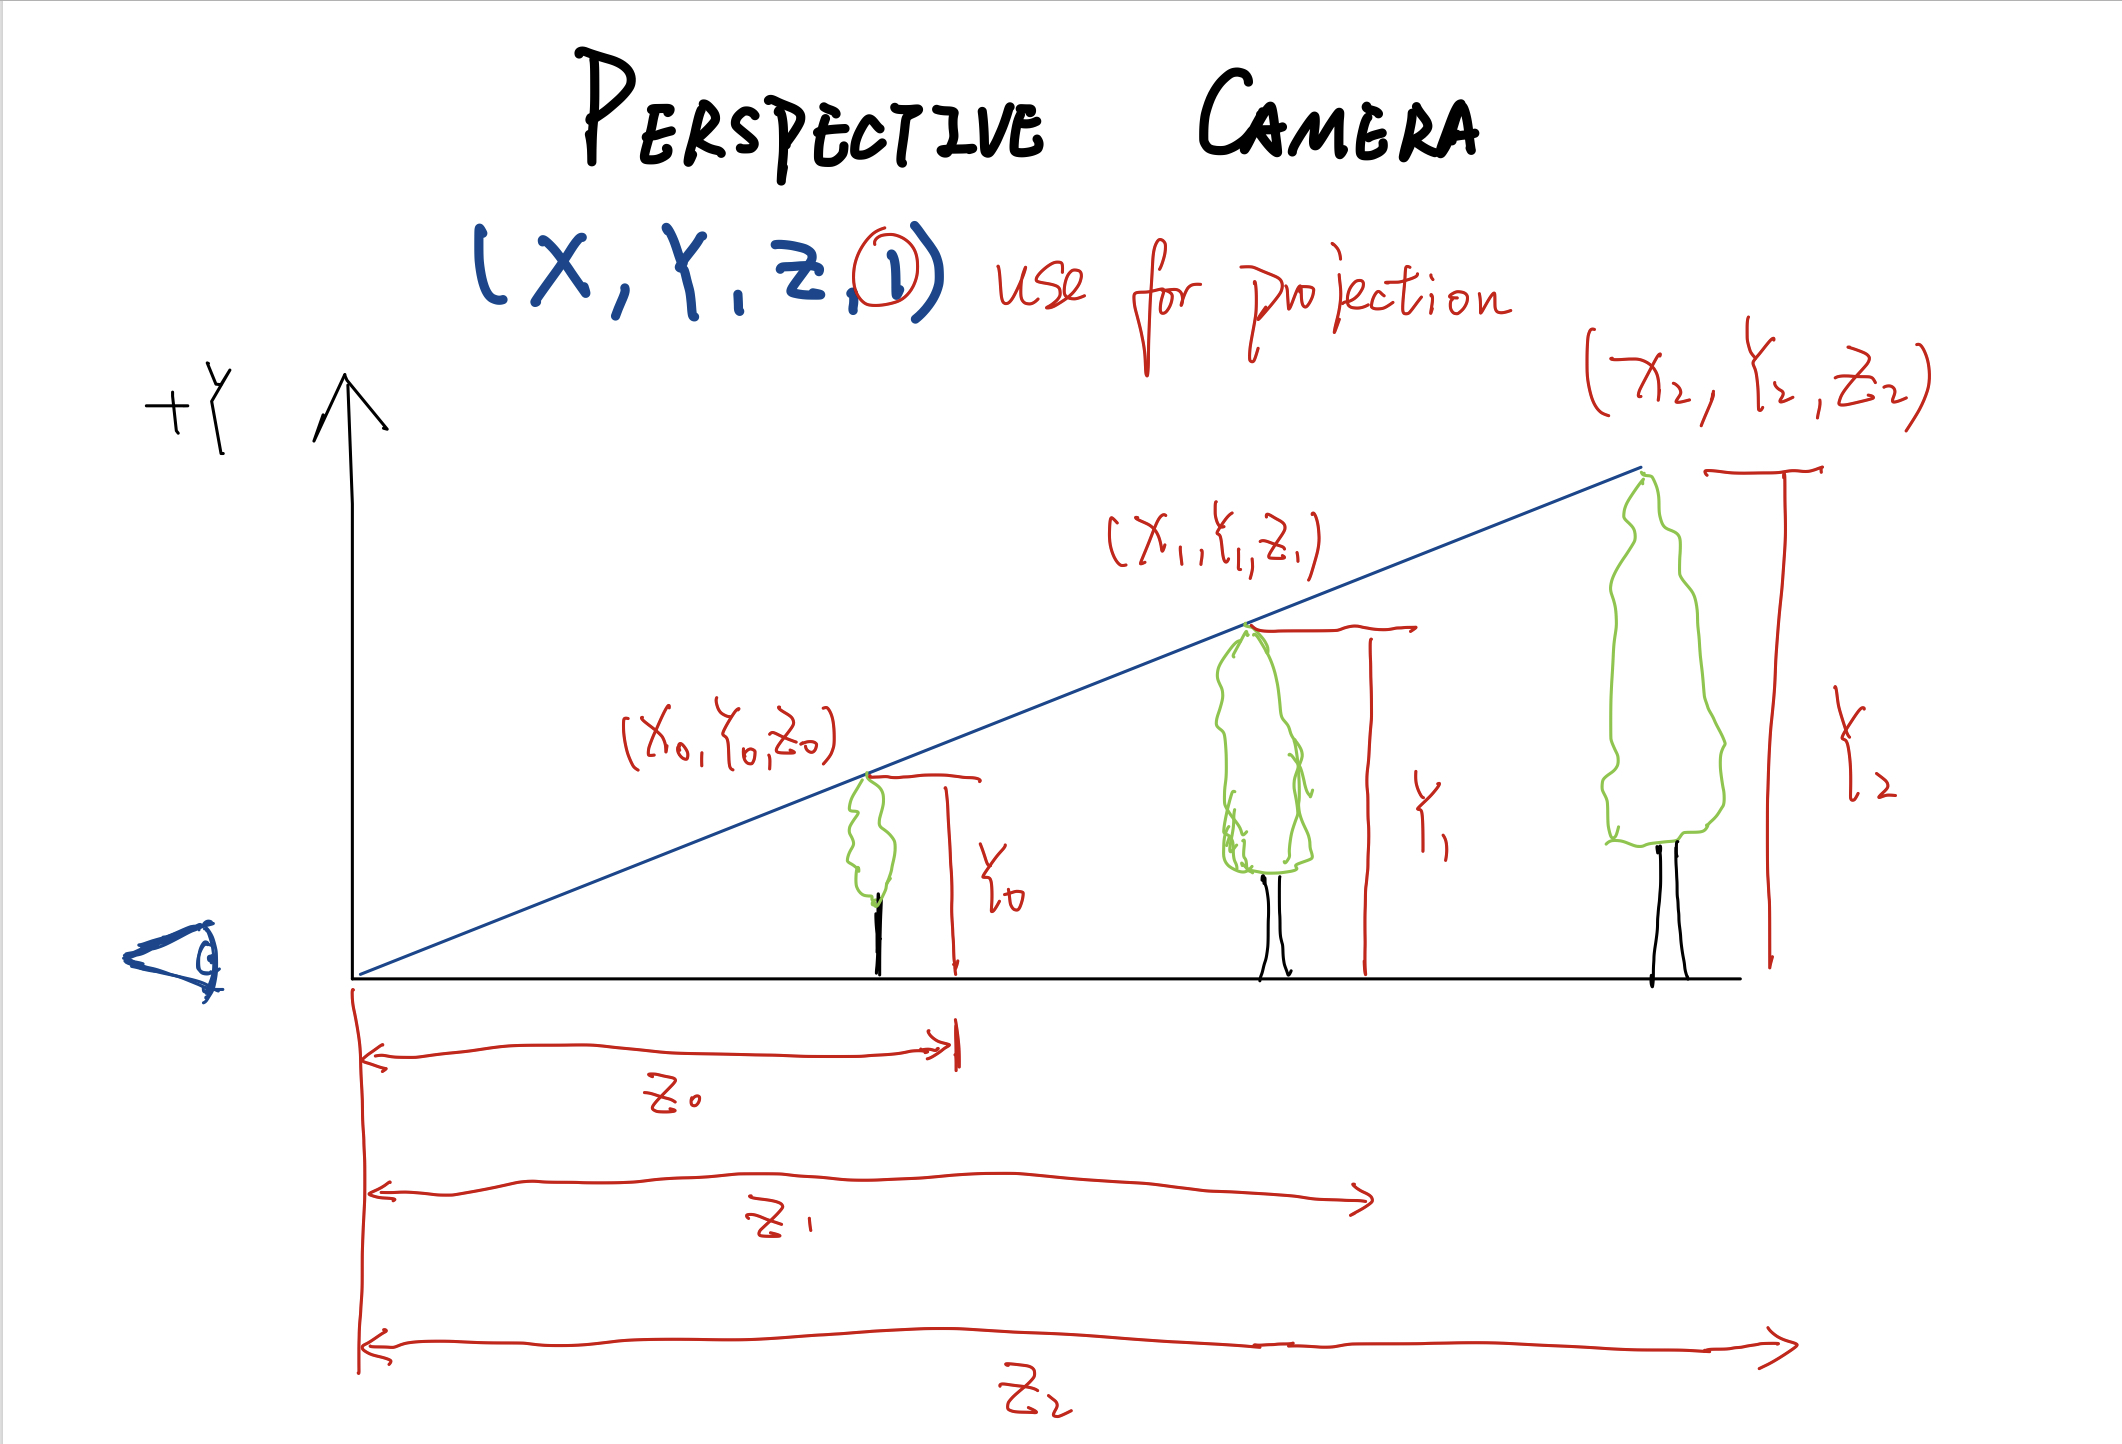 PERSPECTIVE CAMERA
(X, Y, Z, 1) use for projection
(X2, Y2, Z2)
+Y
(X1, Y1, Z1)
(X0, Y0, Z0)
Y2
Y1
Y0
Z0
Z1
Z2